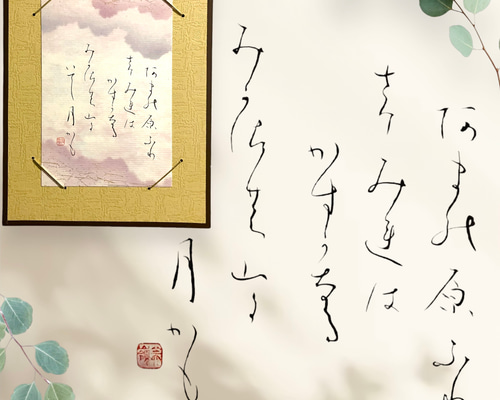 あまの原ふり
さけみれは
かすかなる
みかさの山に
いてし月かも
あまの原ふり
さけみれは
かすかなる
みかさの山に
月かも